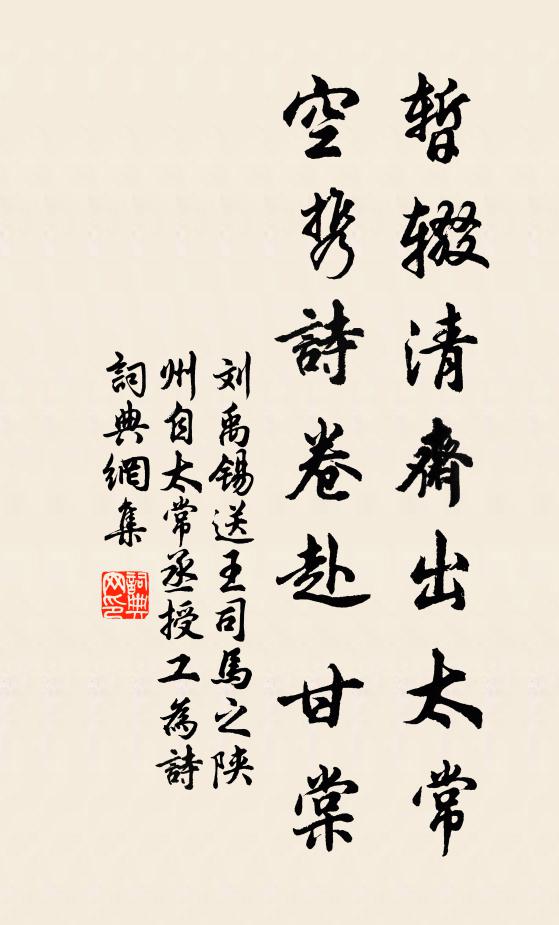 暫辍清齋出太常
空携詩卷赴甘棠
刘禹锡送王司馬之陕
州自太常丞授工為詩
詞典網集
詞典网印